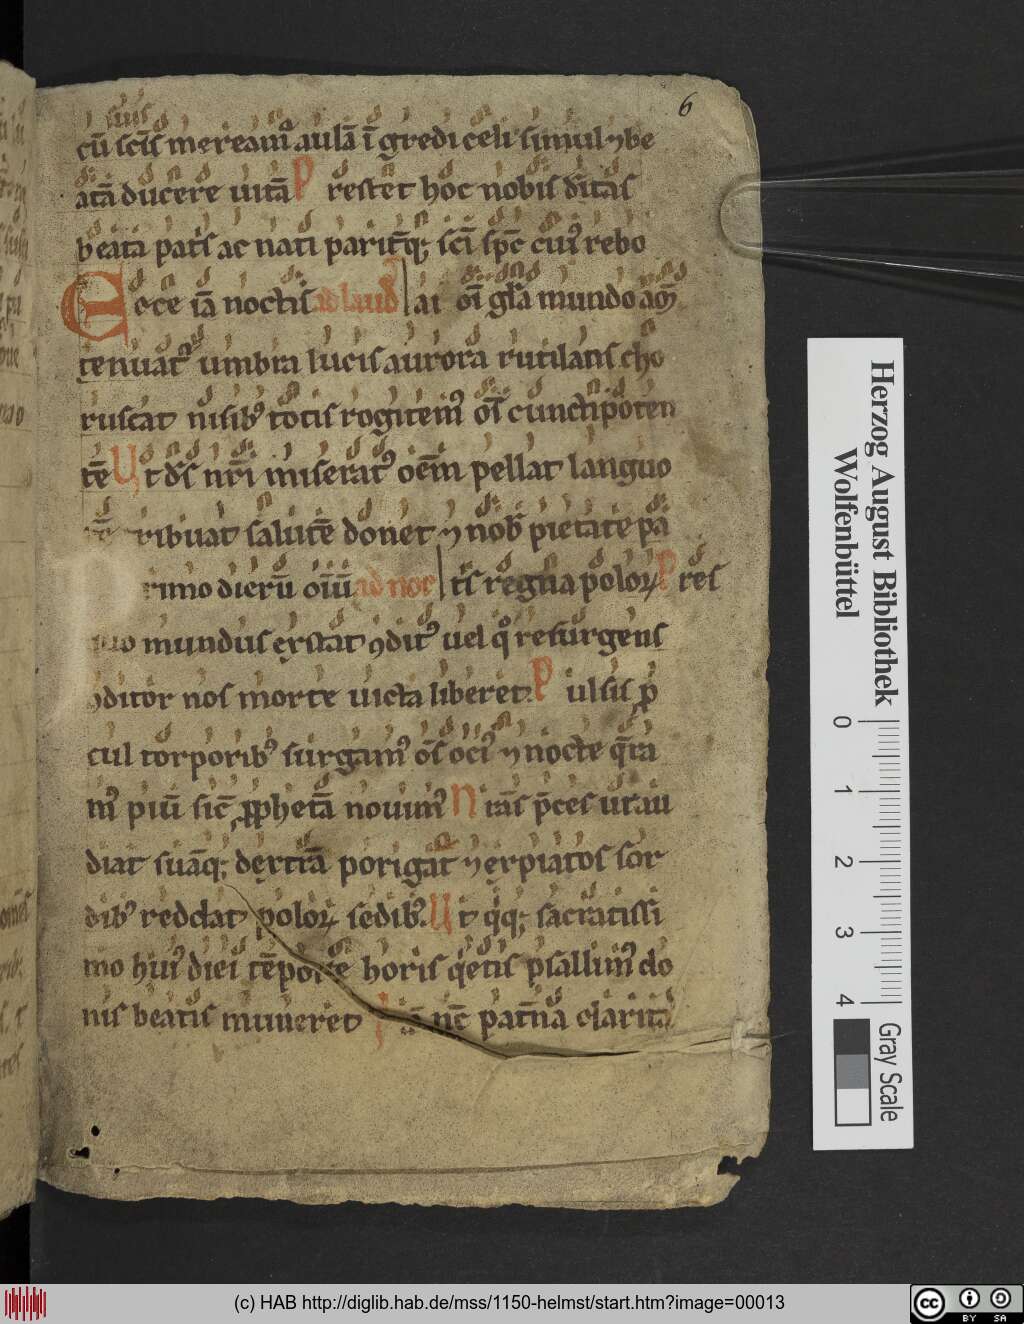 6
suis
cū scīs mereamꝰ aulā īgredi celi simul ⁊ be
atā ducere uitā P restet hoc nobis dītas
beata patˢ ac nati paritq̄ꝫ scī sp̄c cuiꝰ rebo
Ecce iā noctis ad laud ai oī gl̄a mundo am̄
tenuatꝰ umbra lucis aurora rutilans cho
ruscat nisibꝰ totis rogitemꝰ oīs cunctipoten
tē Ut d̄s nr̄i miseratꝰ oēm pellat languo
rē tribuat salutē donet ⁊ nob̄ pietate pa
rimo dierū oīū ad noc tˢ regna poloꝝ P res
quo mundus extat ꝯditꝰ uel qͦ resurgens
ꝯditor nos morte uicta liberet. P ulsis ꝓ
cul torporibꝰ surgamꝰ oīs ociꝰ ⁊ nocte q̄ra
mꝰ piū sic̄ ꝓphetā nouimꝰ N r̄as p̄ces ut au
diat suāqꝫ dextrā porigat ⁊ expiatos sor
dibꝰ reddat poloꝝ sedibꝰ. U t qͥqꝫ sacratissi
mo huiꝰ diei tēpore horis qͥetis psallimꝰ do
nis beatis muneret I ā nc̄ pat̄na claritas
Herzog August Bibliothek
Wolfenbüttel
0 1 2 3 4
Gray Scale
(c) HAB http://diglib.hab.de/mss/1150-helmst/start.htm?image=00013
cc BY SA